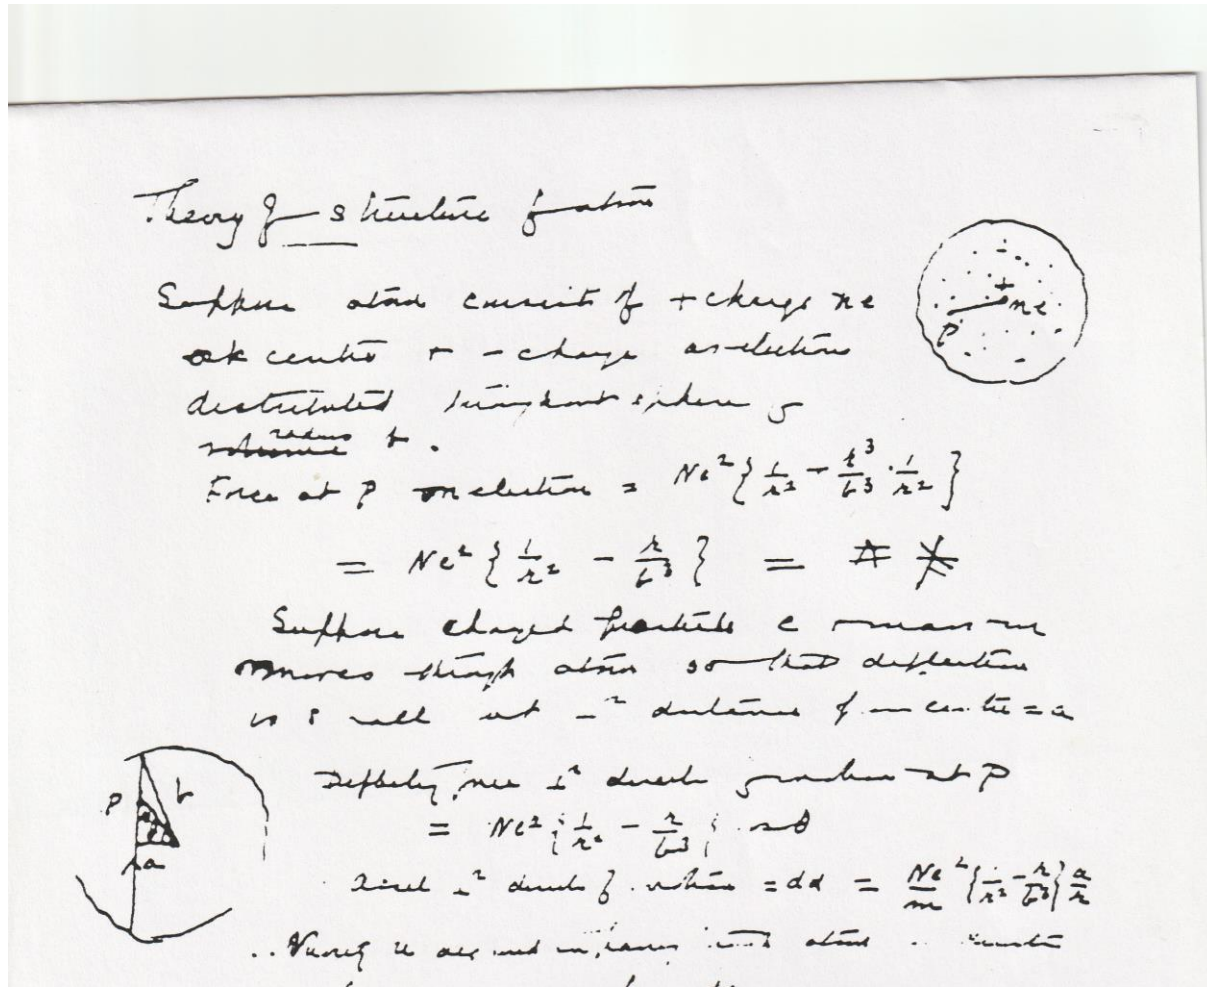 Theory of structure of atom
Suppose atom consists of + charge ne
at centre + - charge as electrons
distributed throughout sphere of
radius b.
Force at P on electron = Ne² { 1/r² - r³/b³ · 1/r² }
= Ne² { 1/r² - r/b³ } =
Suppose charged particle e mass m
moves through atom so that deflection
is small and ⊥ʳ distance from centre = a
Deflecting force ⊥ʳ direction of motion at P
= Ne² { 1/r² - r/b³ } cos θ
accel ⊥ʳ direction of motion = dd = Ne²/m { 1/r² - r/b³ } a/r
∴ Velocity
atom
+
ne
P
P
b
a